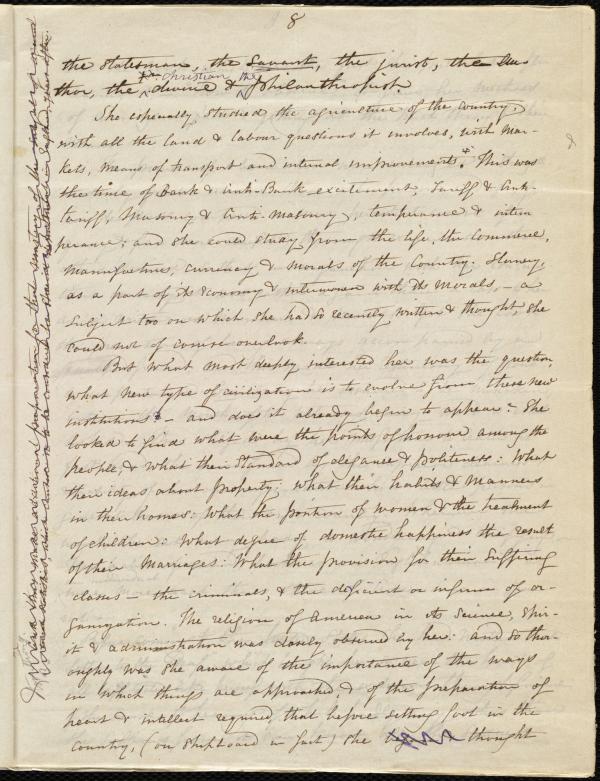 8
the statesman, the Savant, the jurist, the Au-
thor, the divine & ^the Christian ^the Philanthropist.
She especially studied the agriculture of the country,
with all the land & labour questions it involves, with Mar-
kets, means of transport and internal improvements. This was
the time of Bank & Anti-Bank excitement, Tariff & Anti-
tariff, Masonry & Anti-Masonry, temperance & intem
perance; and she could study from the life, the Commerce,
Manufactures, currency & morals of the Country. Slavery,
as a part of its economy & interwoven with its Morals, — a
subject too on which she had so recently written & thought, she
could not of course overlook.
But what most deeply interested her was the question,
what new type of civilization is to evolve from these new
institutions? — and does it already begin to appear? She
looked to find what were the points of honour among the
people, & what their Standard of elegance & politeness: What
their ideas about property; what their habits & Manners
in their homes: What the portion of women & the treatment
of children: What degree of domestic happiness the result
of their Marriages: What the provision for their Suffering
classes — the criminals, & the deficient or infirm of or-
ganization. The religion of America in its Science, Spir-
it & administration was closely observed by her: and so tho-
oughly was she aware of the importance of the ways
in which things are approached, & of the preparation of
heart & intellect required, that before setting foot in the
country, (on Shipboard in fact) she thought